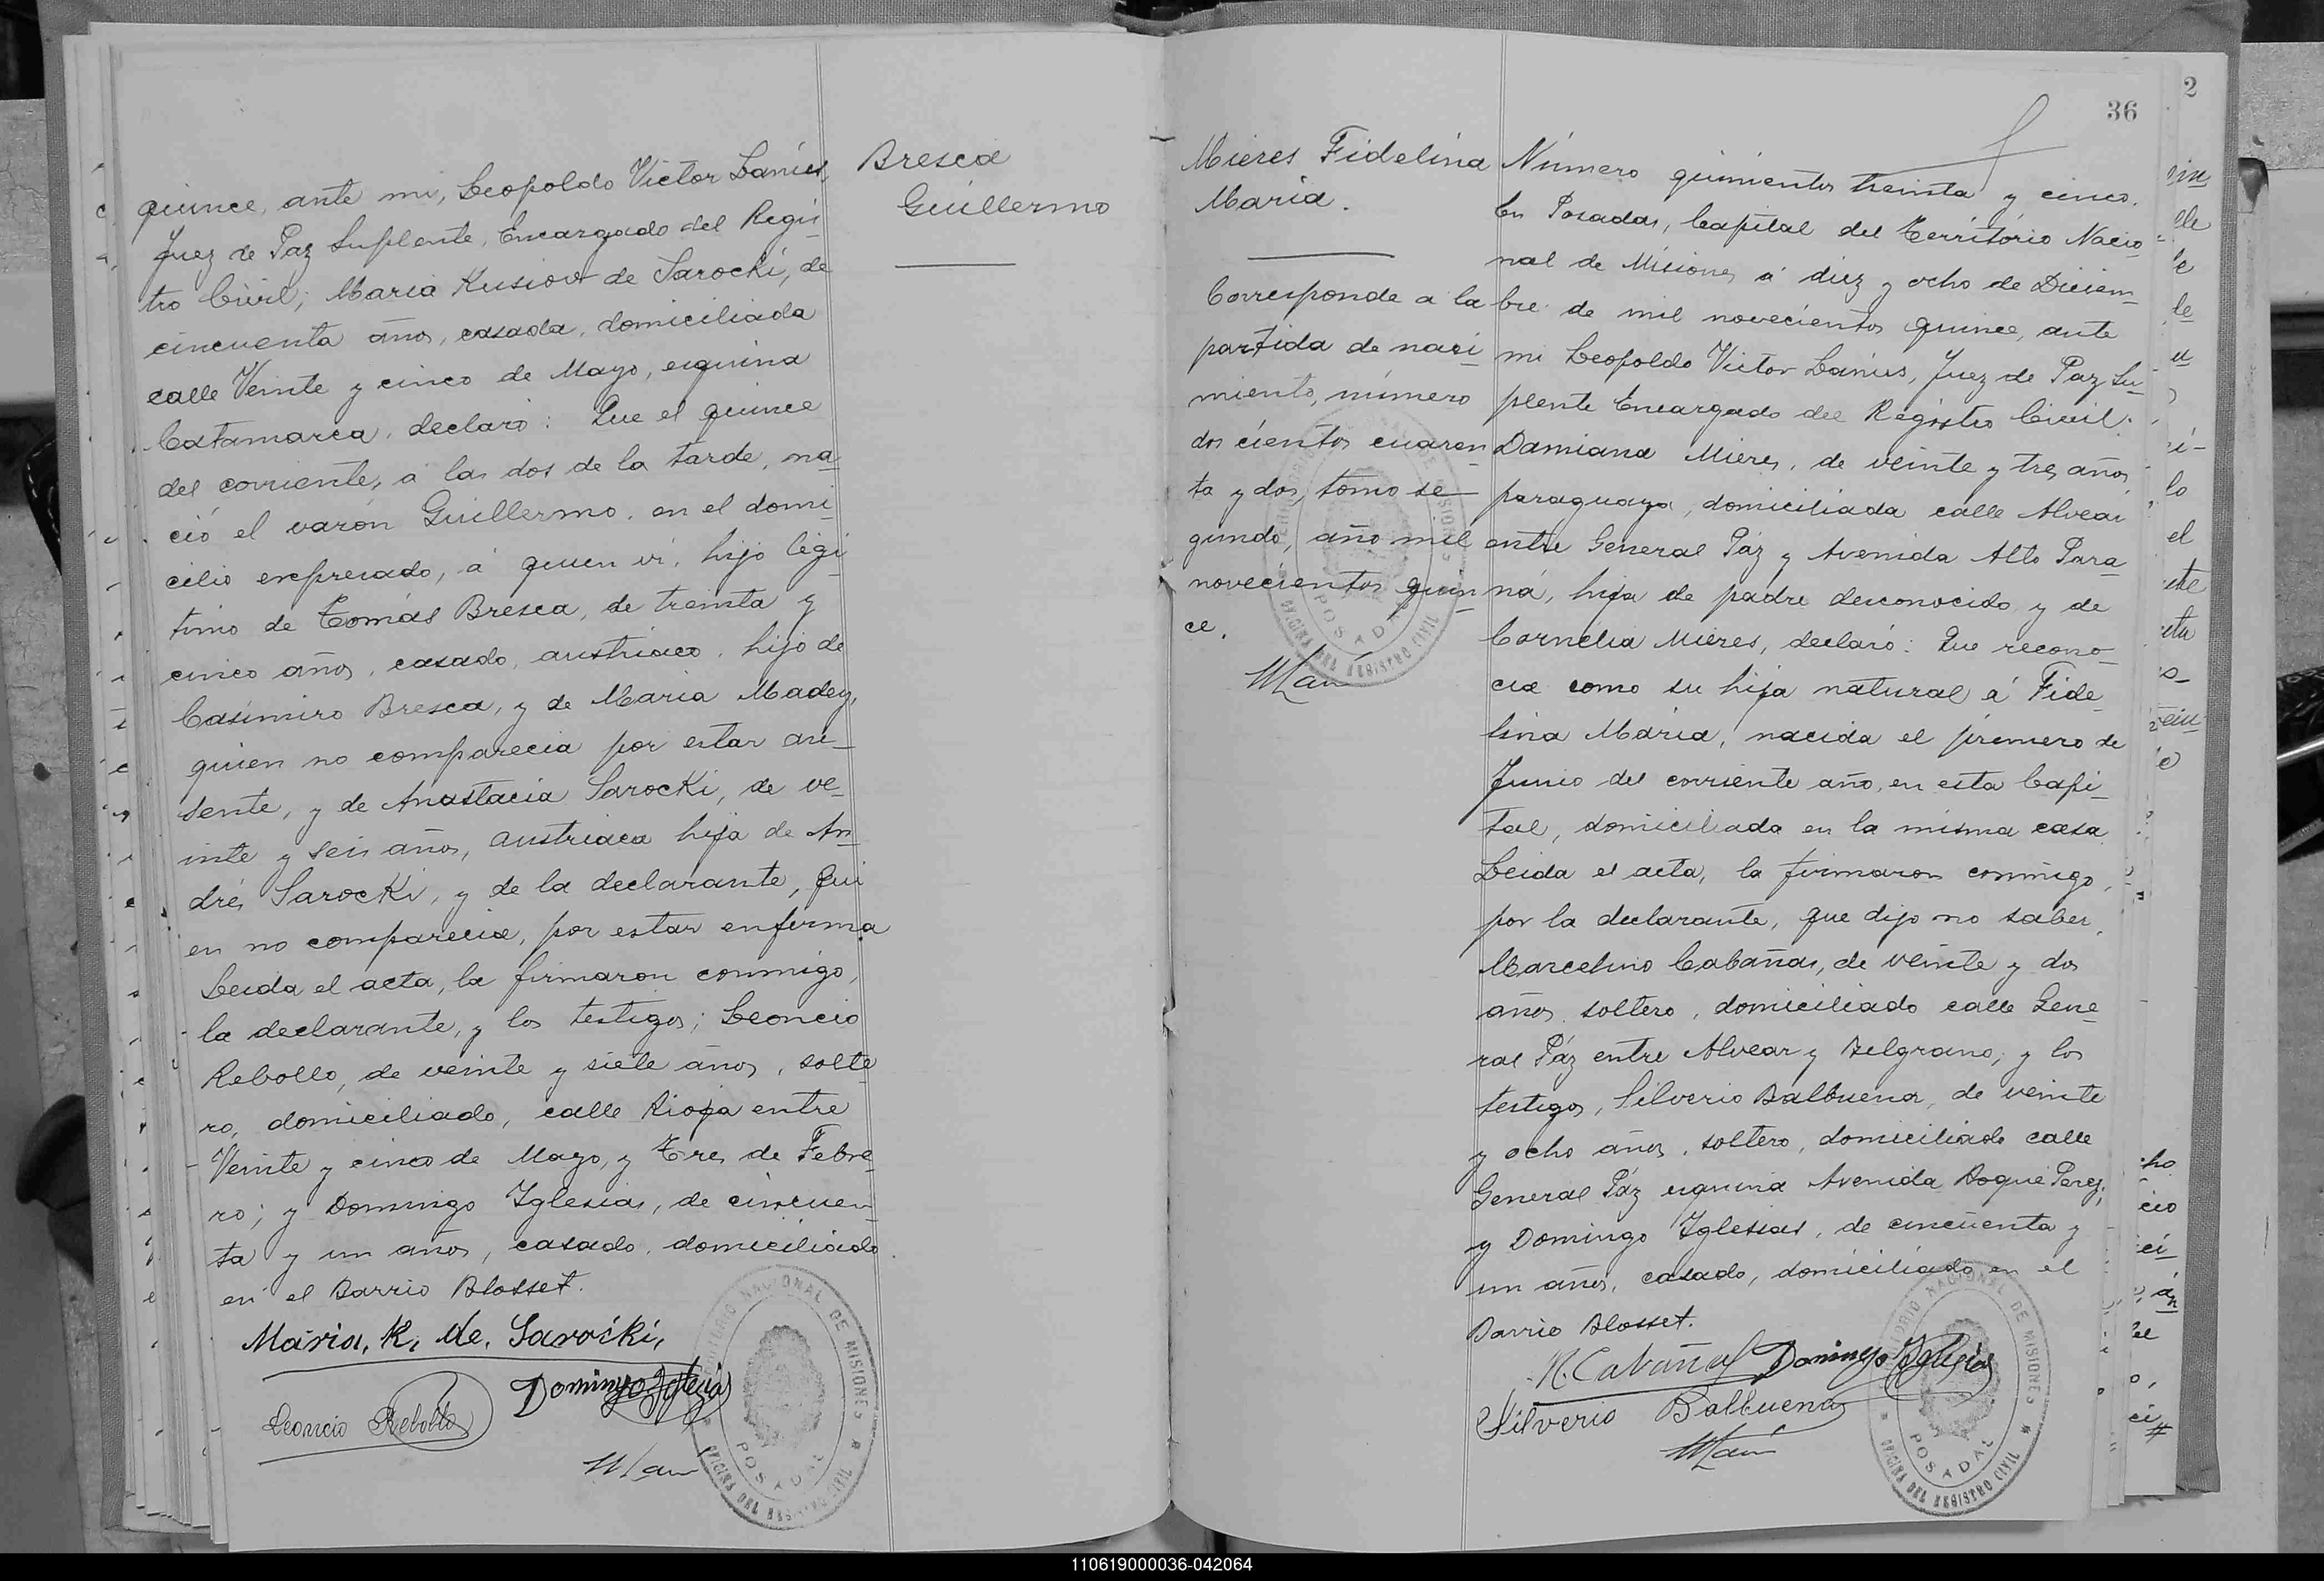 Bresca
Guillermo
quince, ante mi, Leopoldo Victor Lanús,
Juez de Paz Suplente, Encargado del Regis-
tro Civil; Maria Kusiow de Sarocki, de
cincuenta años, casada, domiciliada
calle Veinte y cinco de Mayo, esquina
Catamarca, declaró: Que el quince
del corriente, á las dos de la tarde, na-
ció el varón Guillermo, en el domi-
cilio expresado, á quien vi, hijo legi-
timo de Tomás Bresca, de treinta y
cinco años, casado, austriaco, hijo de
Casimiro Bresca, y de Maria Madey,
quien no comparecia por estar au-
sente, y de Anastacia Sarocki, de ve-
inte y seis años, austriaca hija de An-
drés Sarocki, y de la declarante, qui
en no comparecia, por estar enferma.
Leida el acta, la firmaron conmigo,
la declarante, y los testigos; Leoncio
Rebollo, de veinte y siete años, solte-
ro, domiciliado, calle Rioja entre
Veinte y cinco de Mayo, y Tres de Febre-
ro; y Domingo Iglesias, de cincuen-
ta y un años, casado, domiciliado
en el Barrio Blosset.
Maria, K, de, Sarocki,
Domingo Iglesias
Leoncio Rebollo
TERRITORIO NACIONAL DE MISIONES
POSADAS
OFICINA DEL REGISTRO CIVIL
36
2
Mieres Fidelina
Maria.
Corresponde a la
partida de naci
miento, número
dos cientos cuaren
ta y dos, tomo se-
gundo, año mil
novecientos quin-
ce.
POSADAS
OFICINA DEL REGISTRO CIVIL
Número quinientos treinta y cinco.
En Posadas, Capital del Território Nacio-
nal de Misiones á diez y ocho de Diciem-
bre de mil novecientos quince, ante
mi Leopoldo Victor Lanús, Juez de Paz Su-
plente Encargado del Registro Civil:
Damiana Mieres, de veinte y tres años
paraguaya, domiciliada calle Alvear
entre General Páz y Avenida Alto Para-
ná, hija de padre desconocido y de
Cornélia Mieres, declaró: Que recono-
cia como su hija natural á Fide-
lina Maria, nacida el primero de
Junio del corriente año, en esta Capi-
tal, domiciliada en la misma casa.
Leida el acta, la firmaron conmigo,
por la declarante, que dijo no saber,
Marcelino Cabañas, de veinte y dos
años, soltero, domiciliado calle Gene-
ral Páz entre Alvear y Belgrano; y los
testigos, Silverio Balbuena, de veinte
y ocho años, soltero, domiciliado calle
General Páz esquina Avenida Roque Perez;
y Domingo Iglesias, de cincuenta y
un años, casado, domiciliado en el
Barrio Blosset.
M. Cabañas Domingo Iglesias
Silverio Balbuena
TERRITORIO NACIONAL DE MISIONES
POSADAS
OFICINA DEL REGISTRO CIVIL
110619000036-042064